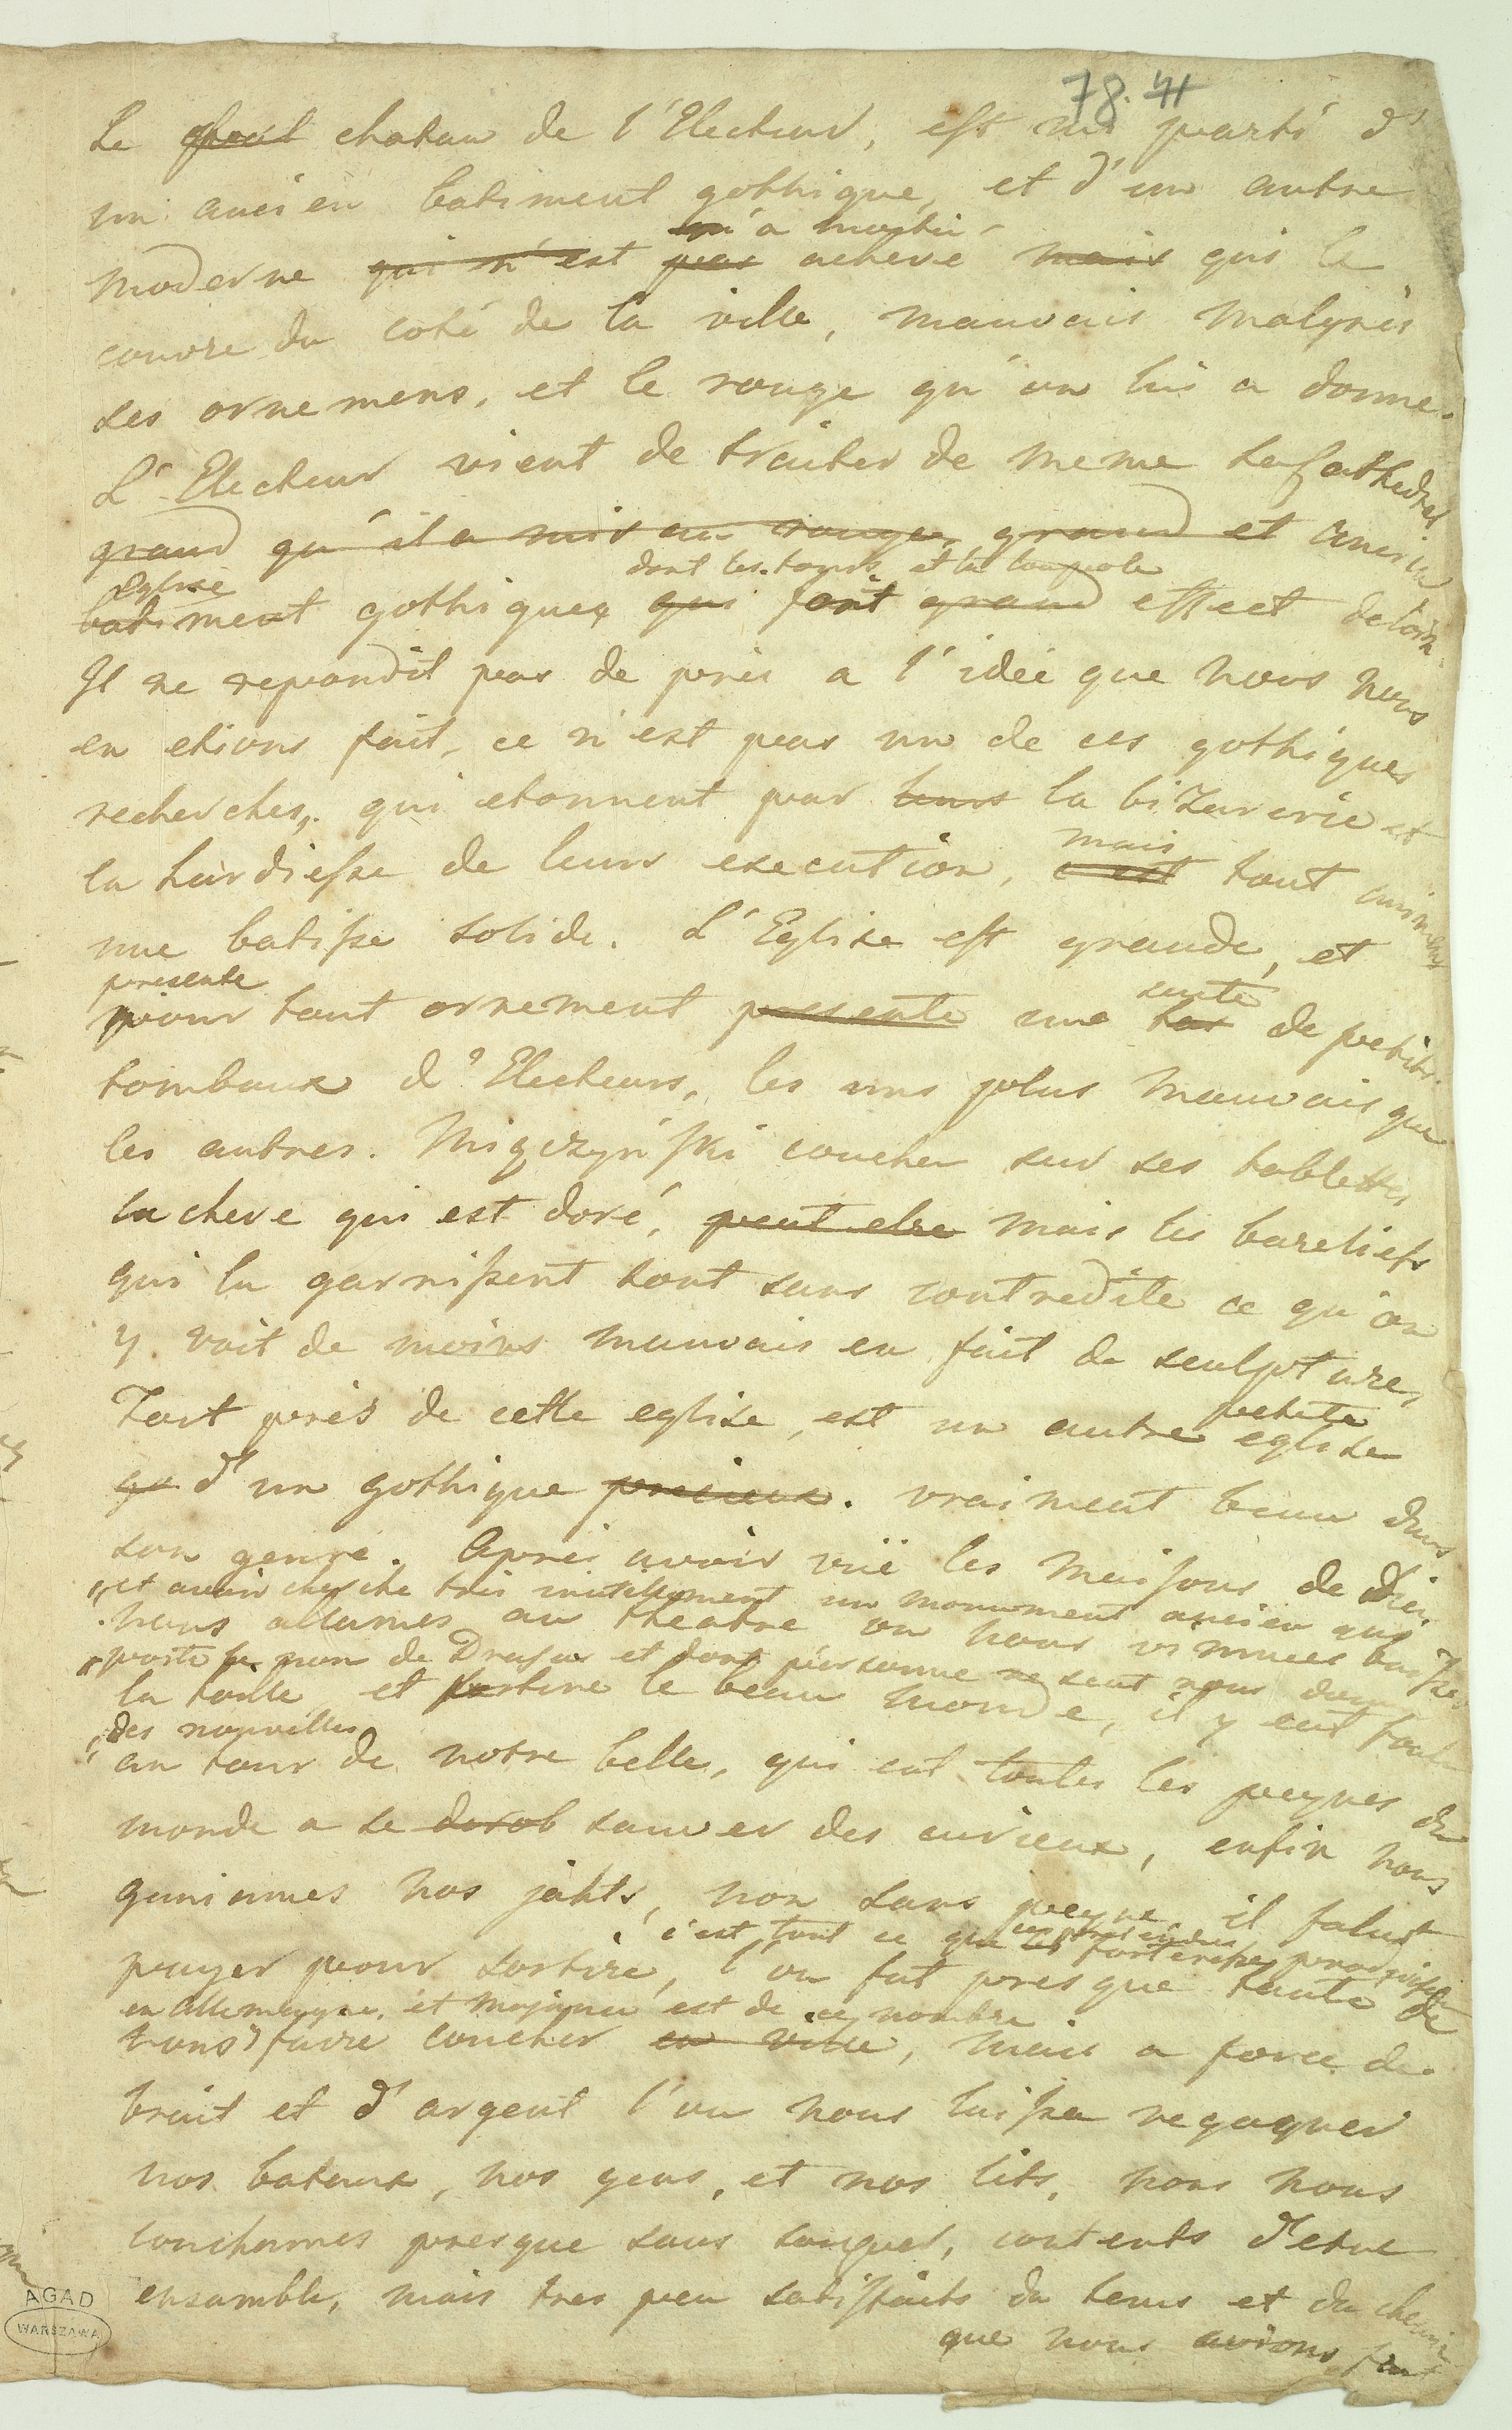 78. 41
Le chatau de l'Electeur, est mi parti d'
un ancien batiment gothique, et d'un autre
qu'a moitié
moderne qui n'est pas achevé mais qui le
couvre du coté de la ville, mauvais malgrés
ses ornemens, et le rouge qu'on lui a donné.
L'Electeur vient de traiter de meme la Cathedral
grand qu'il a mis au rouge, grand et ancien
Eglise dont les tours et la coupole
batiment gothique, qui font grand effect de loin.
Il ne repondit pas de près a l'idée que nous nous
en etions fait, ce n'est pas un de ces gothiques
recherches, qui etonnent par leurs la bizarerie et
mais
la hardiesse de leurs execution, c'est tout uniment
une batisse solide. L'Eglise est grande, et
presente suite
pour tout ornement presente une tas de petits
tombaux d'Electeurs, les uns plus mauvais que
les autres. Miączyński coucher sur ses tablettes
la cheve qui est doré, peut etre mais les bareliefs
qui la garnissent sont sans contredite ce qu'on
y voit de moins mauvais en fait de sculpture,
petite
Tout près de cette eglise, est un autre eglise
qu d'un gothique precieux. vraiment beau dans
son genre. Après avoir vüe les maisons de Dieu
et avoir cherché très inutillement un monument ancien qui
nous allames au theatre ou nous vinmes baisser
porte le nom de Drusus et dont personne ne scut nous donner
la toille et sortire le beau monde, il y eut foule
des nouvelles
au tour de notre belle, qui eut toutes les peynes du
monde a se derob sauver des curieux, enfin nous
ganiames nos jahts, non sans peyne il falut
c'est tout ce que ces pretendues forteresses produisent
payer pour sortire, l'on fut presque tenté de
en Allemagne, et Mayence est de ce nombre
nous faire coucher en ville, mais a force de
bruit et d'argent l'on nous laissa regagner
nos bateaux, nos gens, et nos lits, nous nous
couchames presque sans souper, contents d'etre
ensamble, mais tres peu satisfaits du tems et du chemin
que nous avions fait
AGAD
WARSZAWA